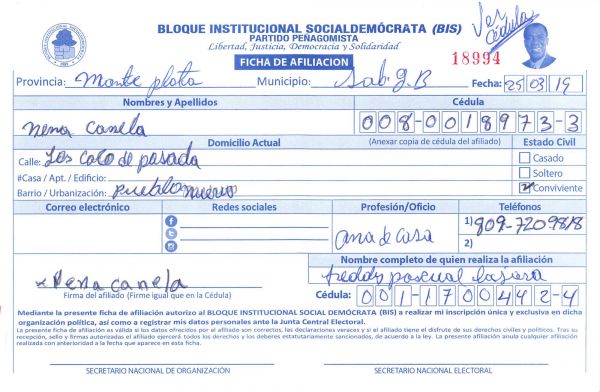 BLOQUE INSTITUCIONAL SOCIALDEMÓCRATA (BIS)
PARTIDO PEÑAGOMISTA
Libertad, Justicia, Democracia y Solidaridad
Ver Cédula
FICHA DE AFILIACION
18994
Provincia: Monte plata Municipio: Sab. G.B Fecha: 25 03 19
Nombres y Apellidos Cédula
nena Canela 008-0018973-3
Domicilio Actual (Anexar copia de cédula del afiliado) Estado Civil
Calle: Los Coco de pasada Casado
#Casa / Apt. / Edificio: Soltero
Barrio / Urbanización: Pueblo nuevo Conviviente
Correo electrónico Redes sociales Profesión/Oficio Teléfonos
ama de casa 1) 809-7209818
2)
Nombre completo de quien realiza la afiliación
x Nena canela freddy pascual
Firma del afiliado (Firme igual que en la Cédula) Cédula: 001-1700442-4
Mediante la presente ficha de afiliación autorizo al BLOQUE INSTITUCIONAL SOCIAL DEMÓCRATA (BIS) a realizar mi inscripción única y exclusiva en dicha
organización política, así como a registrar mis datos personales ante la Junta Central Electoral.
La presente ficha de afiliación es válida si los datos ofrecidos por el afiliado son correctos, las declaraciones veraces y si el afiliado tiene el disfrute de sus derechos civiles y políticos. Tras su
recepción, sello y firmas autorizadas el afiliado ejercerá todos los derechos y los deberes estatutariamente sancionados, de acuerdo a la ley. La presente afiliación anula cualquier afiliación
realizada con anterioridad a la fecha que aparece en esta ficha.
SECRETARIO NACIONAL DE ORGANIZACIÓN SECRETARIO NACIONAL ELECTORAL